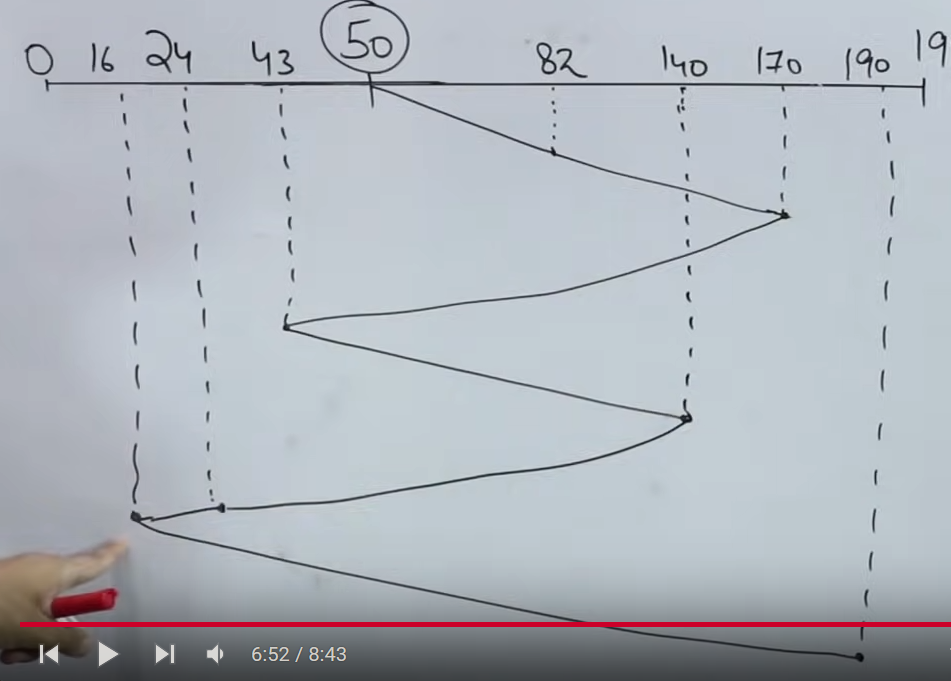 0 16 24 43 50 82 140 170 190 19
6:52 / 8:43